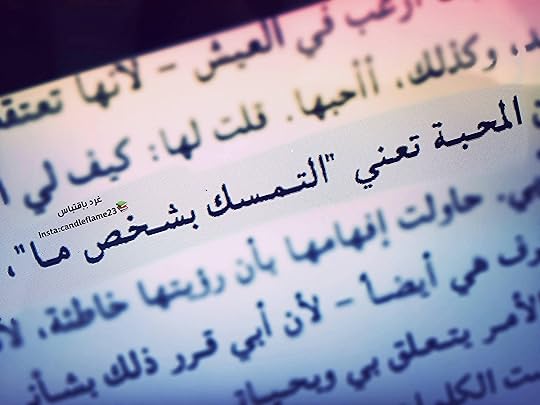 أرغب في العيش – لأنها تعتقد
، وكذلك، أأحبها. قلت لها: كيف لي
المحبة تعني "التمسك بشخص ما"،
غرد باقتباس
Insta:candleflame23
حاولت إفهامها بأن رؤيتها خاطئة،
هي أيضاً – لأن أبي قرر ذلك بشأن
الأمر يتعلق بي وبحياتي